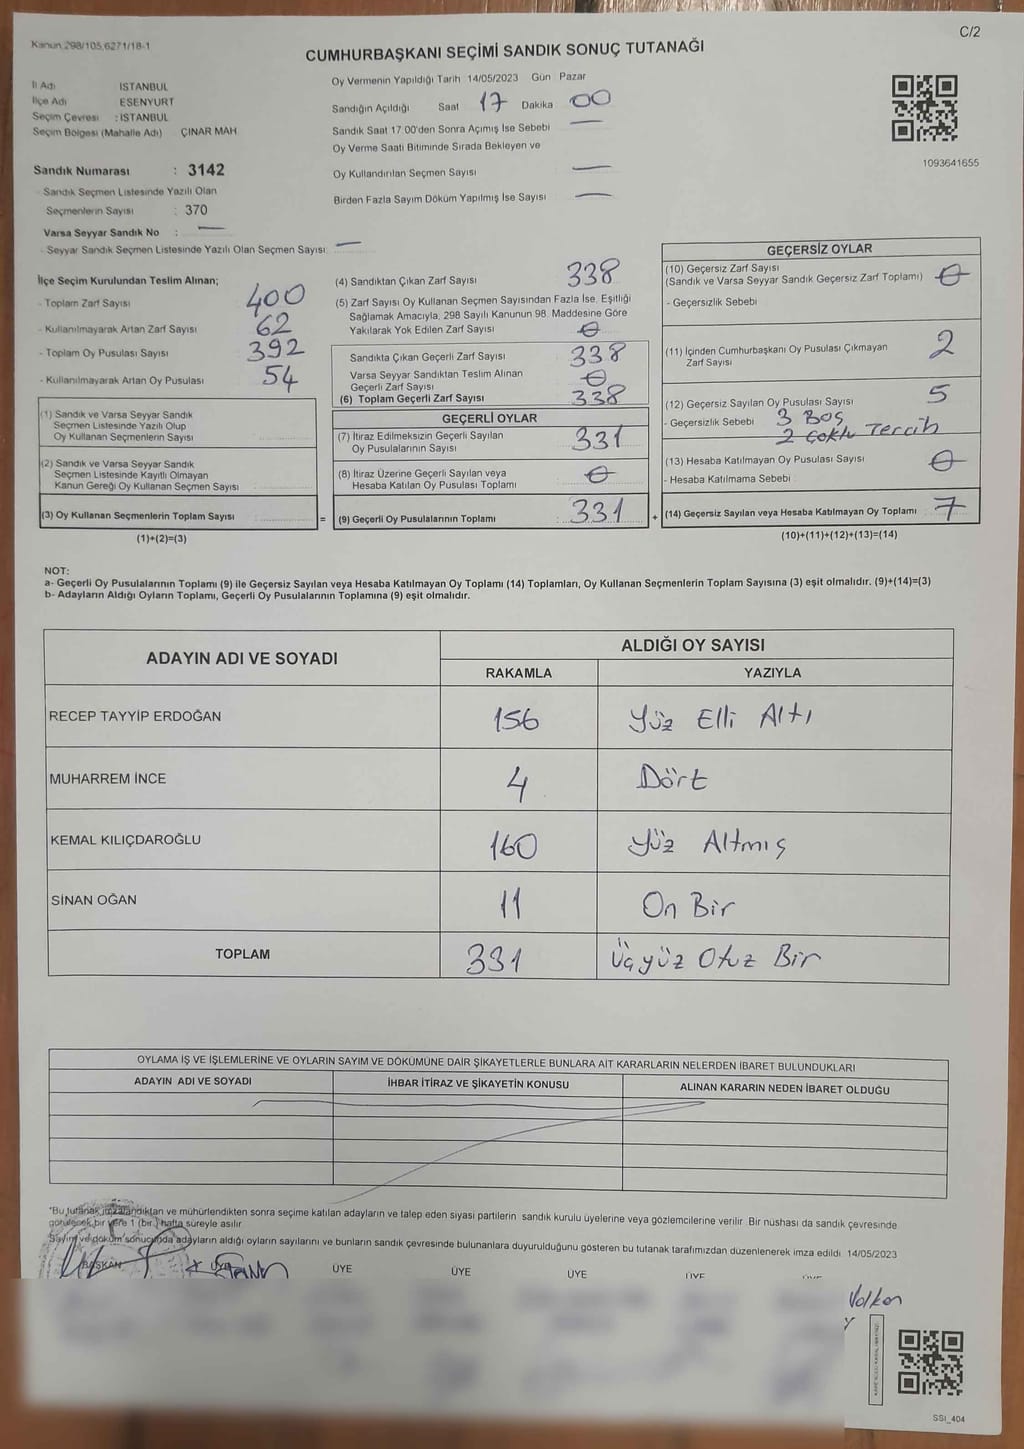 Kanun 298/105,6271/18-1
C/2
CUMHURBAŞKANI SEÇİMİ SANDIK SONUÇ TUTANAĞI
İl Adı : İSTANBUL
İlçe Adı : ESENYURT
Seçim Çevresi : İSTANBUL
Seçim Bölgesi (Mahalle Adı) ÇINAR MAH
Sandık Numarası : 3142
- Sandık Seçmen Listesinde Yazılı Olan
Seçmenlerin Sayısı : 370
Varsa Seyyar Sandık No : —
- Seyyar Sandık Seçmen Listesinde Yazılı Olan Seçmen Sayısı: —
Oy Vermenin Yapıldığı Tarih 14/05/2023 Gün Pazar
Sandığın Açıldığı Saat 17 Dakika 00
Sandık Saat 17:00'den Sonra Açımış İse Sebebi —
Oy Verme Saati Bitiminde Sırada Bekleyen ve
Oy Kullandırılan Seçmen Sayısı —
Birden Fazla Sayım Döküm Yapılmış İse Sayısı —
1093641655
İlçe Seçim Kurulundan Teslim Alınan;
- Toplam Zarf Sayısı 400
- Kullanılmayarak Artan Zarf Sayısı 62
- Toplam Oy Pusulası Sayısı 392
- Kullanılmayarak Artan Oy Pusulası 54
(1) Sandık ve Varsa Seyyar Sandık
Seçmen Listesinde Yazılı Olup
Oy Kullanan Seçmenlerin Sayısı
(2) Sandık ve Varsa Seyyar Sandık
Seçmen Listesinde Kayıtlı Olmayan
Kanun Gereği Oy Kullanan Seçmen Sayısı
(3) Oy Kullanan Seçmenlerin Toplam Sayısı =
(1)+(2)=(3)
(4) Sandıktan Çıkan Zarf Sayısı 338
(5) Zarf Sayısı Oy Kullanan Seçmen Sayısından Fazla İse, Eşitliği
Sağlamak Amacıyla, 298 Sayılı Kanunun 98. Maddesine Göre
Yakılarak Yok Edilen Zarf Sayısı 0
Sandıkta Çıkan Geçerli Zarf Sayısı 338
Varsa Seyyar Sandıktan Teslim Alınan
Geçerli Zarf Sayısı 0
(6) Toplam Geçerli Zarf Sayısı 338
GEÇERLİ OYLAR
(7) İtiraz Edilmeksizin Geçerli Sayılan
Oy Pusulalarının Sayısı 331
(8) İtiraz Üzerine Geçerli Sayılan veya
Hesaba Katılan Oy Pusulası Toplamı 0
(9) Geçerli Oy Pusulalarının Toplamı : 331 +
GEÇERSİZ OYLAR
(10) Geçersiz Zarf Sayısı
(Sandık ve Varsa Seyyar Sandık Geçersiz Zarf Toplamı) 0
- Geçersizlik Sebebi
(11) İçinden Cumhurbaşkanı Oy Pusulası Çıkmayan
Zarf Sayısı 2
(12) Geçersiz Sayılan Oy Pusulası Sayısı 5
- Geçersizlik Sebebi 3 Boş
2 Çoklu Tercih
(13) Hesaba Katılmayan Oy Pusulası Sayısı 0
- Hesaba Katılmama Sebebi
(14) Geçersiz Sayılan veya Hesaba Katılmayan Oy Toplamı 7
(10)+(11)+(12)+(13)=(14)
NOT:
a- Geçerli Oy Pusulalarının Toplamı (9) ile Geçersiz Sayılan veya Hesaba Katılmayan Oy Toplamı (14) Toplamları, Oy Kullanan Seçmenlerin Toplam Sayısına (3) eşit olmalıdır. (9)+(14)=(3)
b- Adayların Aldığı Oyların Toplamı, Geçerli Oy Pusulalarının Toplamına (9) eşit olmalıdır.
ADAYIN ADI VE SOYADI ALDIĞI OY SAYISI
RAKAMLA YAZIYLA
RECEP TAYYİP ERDOĞAN 156 Yüz Elli Altı
MUHARREM İNCE 4 Dört
KEMAL KILIÇDAROĞLU 160 Yüz Altmış
SİNAN OĞAN 11 On Bir
TOPLAM 331 Üçyüz Otuz Bir
OYLAMA İŞ VE İŞLEMLERİNE VE OYLARIN SAYIM VE DÖKÜMÜNE DAİR ŞİKAYETLERLE BUNLARA AİT KARARLARIN NELERDEN İBARET BULUNDUKLARI
ADAYIN ADI VE SOYADI İHBAR İTİRAZ VE ŞİKAYETİN KONUSU ALINAN KARARIN NEDEN İBARET OLDUĞU
*Bu tutanak imzalandıktan ve mühürlendikten sonra seçime katılan adayların ve talep eden siyasi partilerin sandık kurulu üyelerine veya gözlemcilerine verilir. Bir nüshası da sandık çevresinde
görülecek bir yere 1 (bir) hafta süreyle asılır.
Sayım ve döküm sonucunda adayların aldığı oyların sayılarını ve bunların sandık çevresinde bulunanlara duyurulduğunu gösteren bu tutanak tarafımızdan düzenlenerek imza edildi 14/05/2023
BAŞKAN ÜYE ÜYE ÜYE ÜYE ÜYE
Volkan
SSI_404